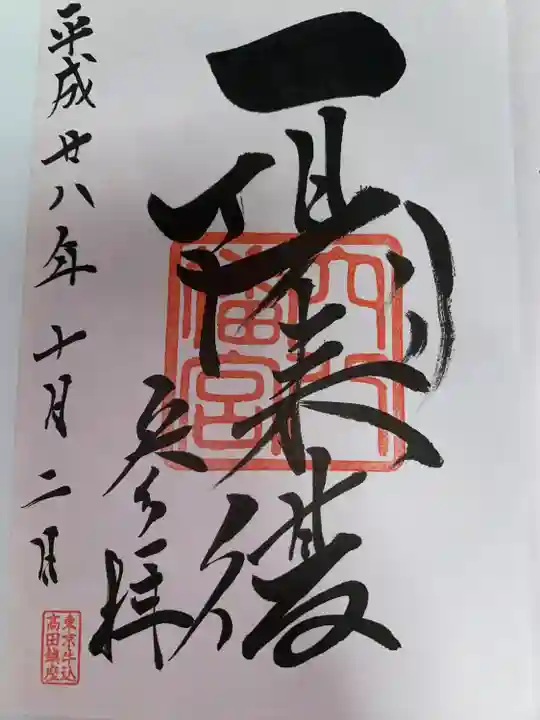 一陽来復
穴八
幡宮
参拝
平成廿八年十月二日
東京牛込
高田鎮座